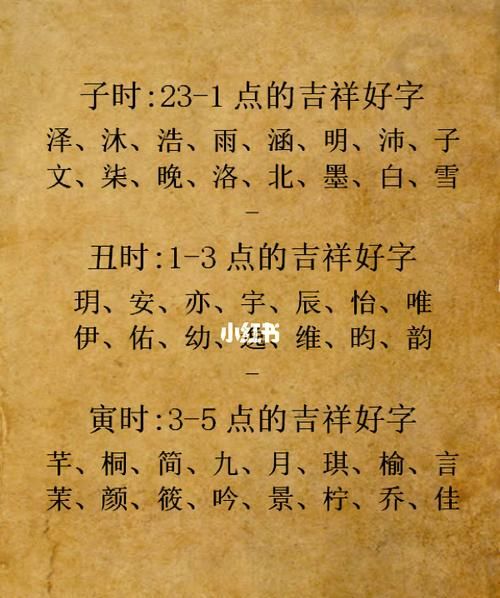 子时:23-1点的吉祥好字
泽、沐、浩、雨、涵、明、沛、子
文、柒、晚、洛、北、墨、白、雪
-
丑时:1-3点的吉祥好字
玥、安、亦、宇、辰、怡、唯
伊、佑、幼、、维、昀、韵
小红书
-
寅时:3-5点的吉祥好字
芊、桐、简、九、月、琪、榆、言
茉、颜、筱、吟、景、柠、乔、佳